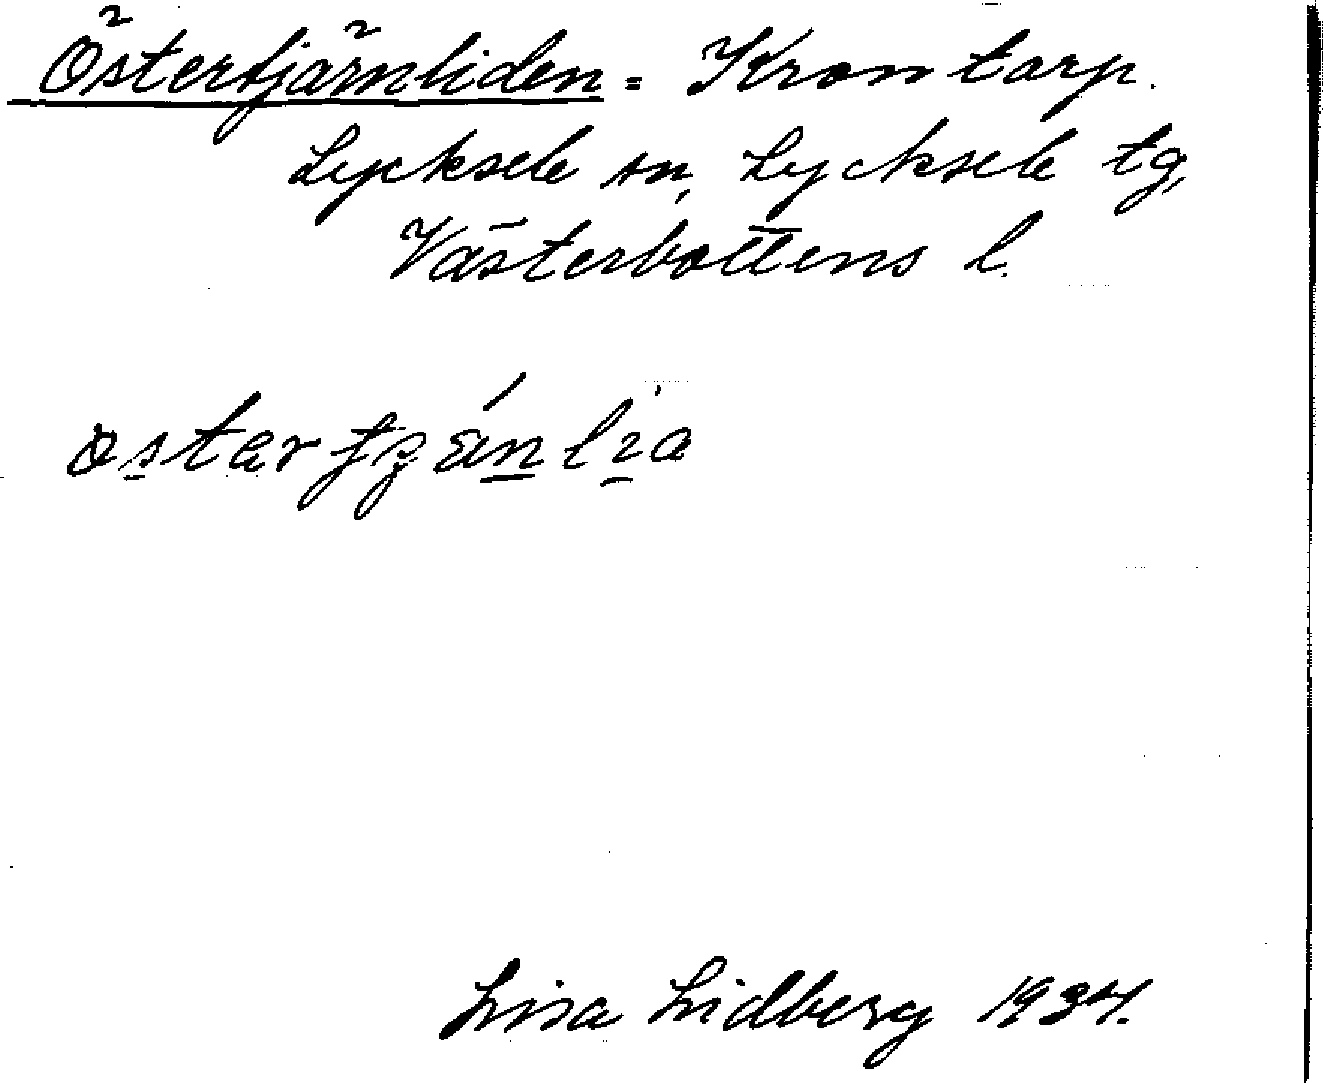 Östertjärnliden = Krontorp.
Lycksele sn, Lycksele tg,
Västerbottens l.
Lisa Lidberg 1934.